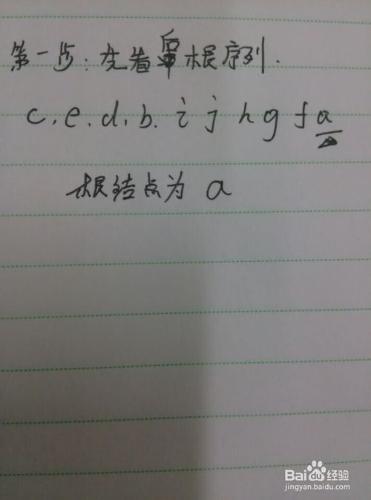 第一步:先看后根序列.
c.e.d.b.i j h g f a
根结点为 a
Baidu经验
jingyan.baidu.com